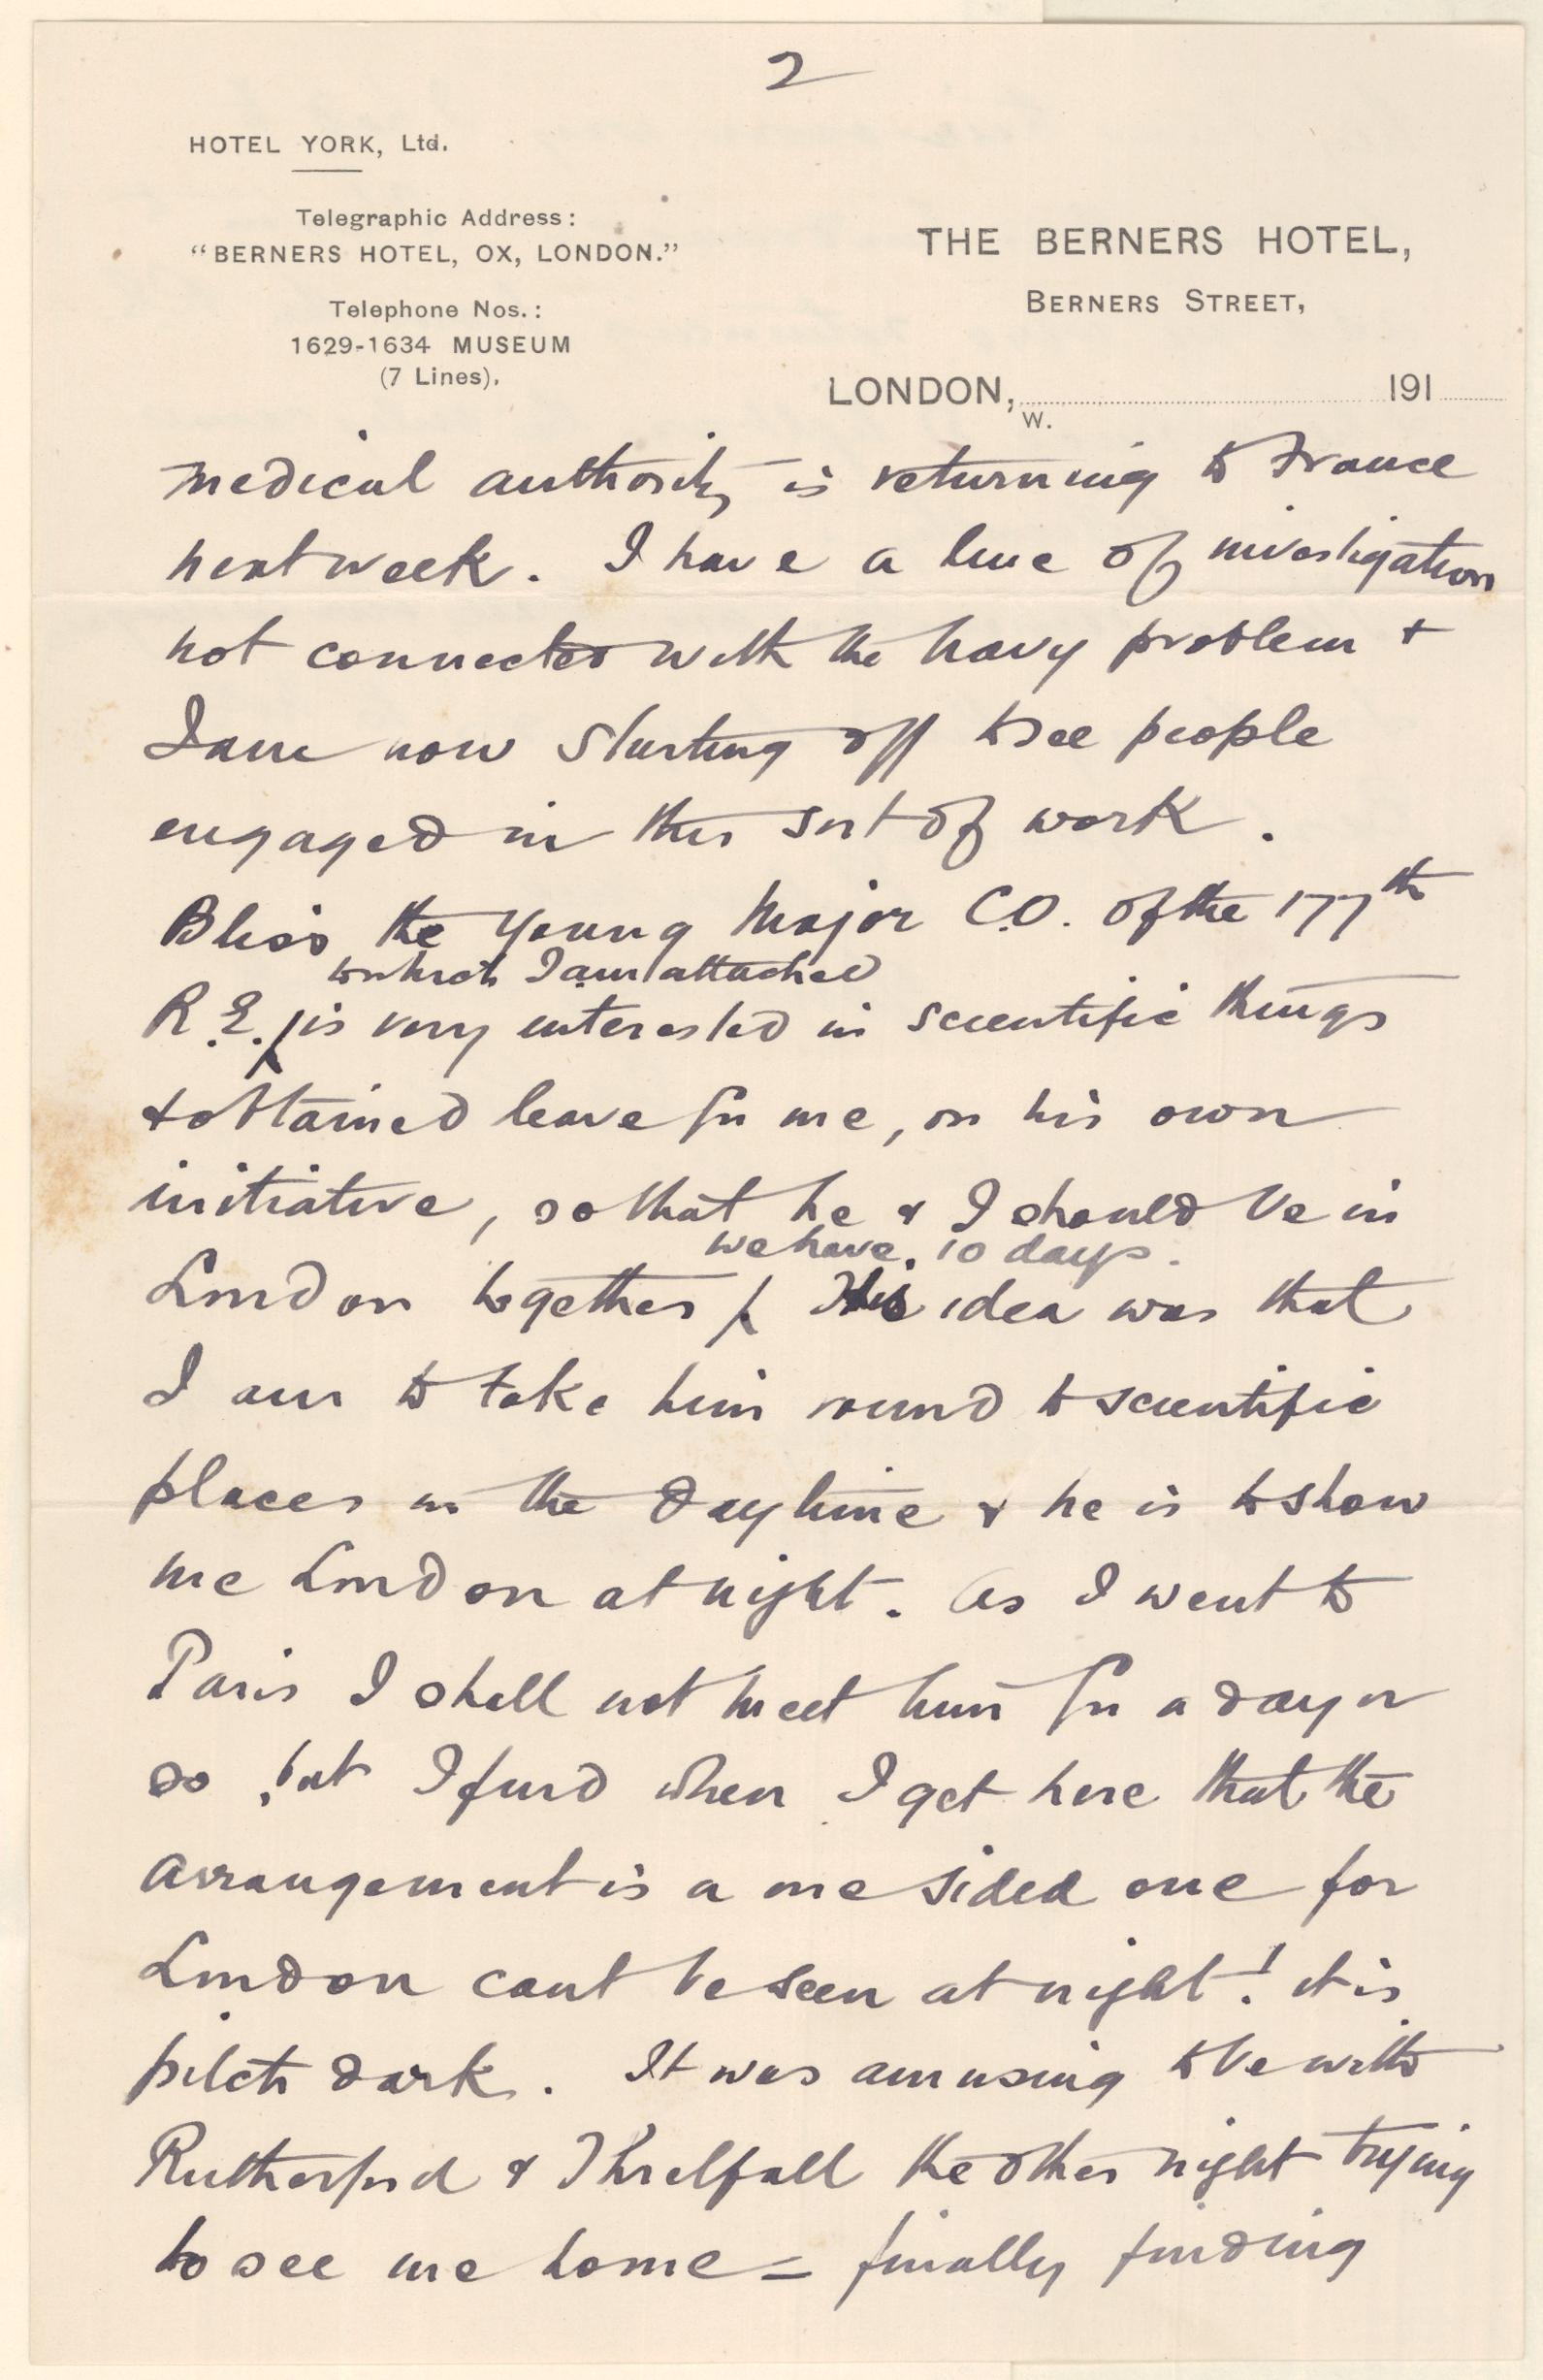 2
HOTEL YORK, Ltd.
Telegraphic Address:
"BERNERS HOTEL, OX, LONDON."
Telephone Nos.:
1629-1634 MUSEUM
(7 Lines).
THE BERNERS HOTEL,
BERNERS STREET,
LONDON, 191
W.
medical authority – is returning to France
next week. I have a line of investigation
not connected with the navy problem +
I am now starting off to see people
engaged in this sort of work.
Bliss the young Major C.O. of the 177th
to which I am attached
R.E. is very interested in scientific things
& obtained leave for me, on his own
initiative, so that he & I should be in
we have 10 days.
London together His idea was that
I am to take him round to scientific
places in the daytime & he is to show
me London at night. As I went to
Paris I shall not meet him for a day or
so, but I find when I get here that the
arrangement is a one sided one for
London cant be seen at night! it is
pitch dark. It was amusing to be with
Rutherford & Threlfall the other night trying
to see me home = finally finding